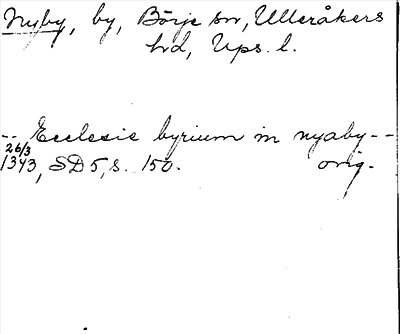 Nyby, by, Börje sn, Ulleråkers
hd, Ups. l.
-- Ecclesie byrium in nyaby --
26/3
1343, SD 5, s. 150. orig.